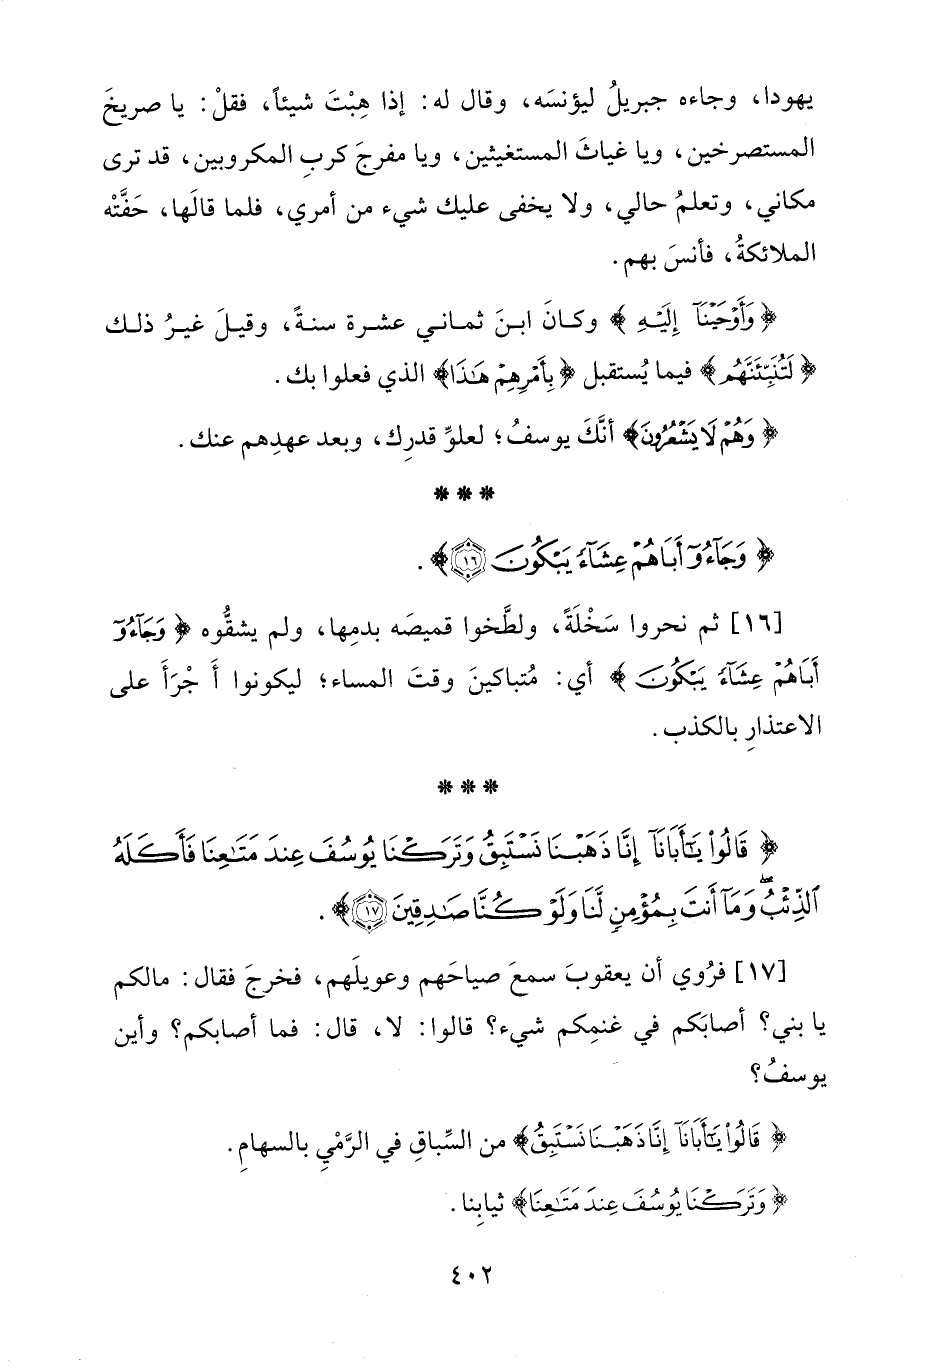 يهودا، وجاءه جبريلُ ليؤنسَه، وقال له: إذا هِبْتَ شيئاً، فقلْ: يا صريخَ
المستصرخين، ويا غياثَ المستغيثين، ويا مفرجَ كربِ المكروبين، قد ترى
مكاني، وتعلمُ حالي، ولا يخفى عليك شيء من أمري، فلما قالَها، حَفَّتْه
الملائكةُ، فأنسَ بهم.
﴿ وَأَوْحَيْنَآ إِلَيْهِ ﴾ وكـانَ ابـنَ ثمـانـي عشـرة سنـةً، وقيـلَ غيـرُ ذلـك
﴿ لَتُنَبِّئَنَّهُم﴾ فيما يُستقبل ﴿بِأَمْرِهِمْ هَٰذَا﴾ الذي فعلوا بك.
﴿ وَهُمْ لَا يَشْعُرُونَ﴾ أنَّكَ يوسفُ؛ لعلوِّ قدرِك، وبعد عهدِهم عنك.
* * *
﴿ وَجَآءُوٓ أَبَاهُمْ عِشَآءً يَبْكُونَ ١٦﴾.
[١٦] ثم نحروا سَخْلَةً، ولطَّخوا قميصَه بدمِها، ولم يشقُّوه ﴿ وَجَآءُوٓ
أَبَاهُمْ عِشَآءً يَبْكُونَ ﴾ أي: مُتباكينَ وقتَ المساء؛ ليكونوا أَجْرَأَ على
الاعتذارِ بالكذب.
* * *
﴿ قَالُوا۟ يَٰٓأَبَانَآ إِنَّا ذَهَبْنَا نَسْتَبِقُ وَتَرَكْنَا يُوسُفَ عِندَ مَتَٰعِنَا فَأَكَلَهُ
ٱلذِّئْبُ ۖ وَمَآ أَنتَ بِمُؤْمِنٍ لَّنَا وَلَوْ كُنَّا صَٰدِقِينَ ١٧﴾.
[١٧] فرُوي أن يعقوبَ سمعَ صياحَهم وعويلَهم، فخرجَ فقال: مالكم
يا بني؟ أصابَكم في غنمِكم شيء؟ قالوا: لا، قال: فما أصابكم؟ وأين
يوسفُ؟
﴿ قَالُوا۟ يَٰٓأَبَانَآ إِنَّا ذَهَبْنَا نَسْتَبِقُ﴾ من السِّباقِ في الرَّمْيِ بالسهامِ.
﴿ وَتَرَكْنَا يُوسُفَ عِندَ مَتَٰعِنَا﴾ ثيابِنا.
٤٠٢